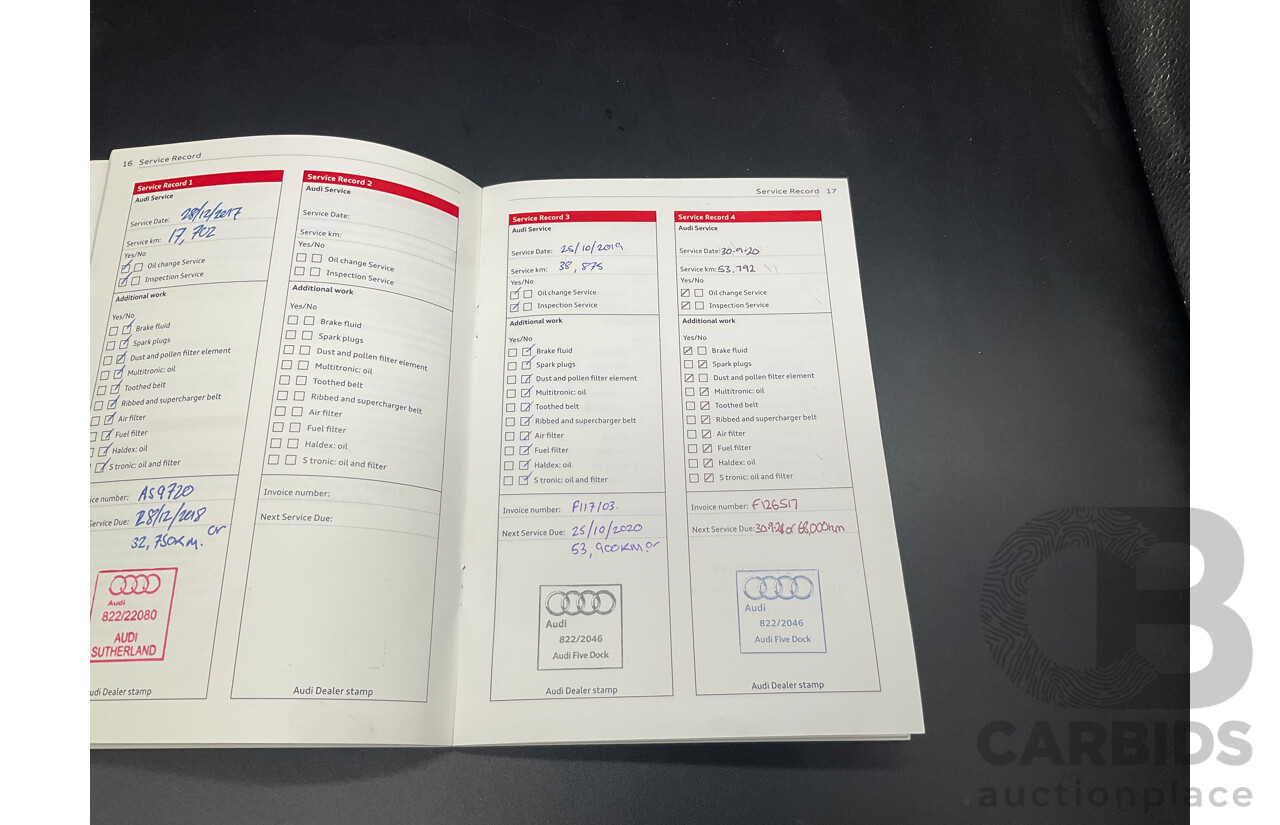 16 Service Record
Service Record 1
Audi Service
Service Date: 28/12/2017
Service km: 17,702
Yes/No
Oil change Service
Inspection Service
Additional work
Yes/No
Brake fluid
Spark plugs
Dust and pollen filter element
Multitronic: oil
Toothed belt
Ribbed and supercharger belt
Air filter
Fuel filter
Haldex: oil
S tronic: oil and filter
ice number: AS9720
Service Due: 28/12/2018
or
32,750KM.
Audi
822/22080
AUDI
SUTHERLAND
udi Dealer stamp
Service Record 2
Audi Service
Service Date:
Service km:
Yes/No
Oil change Service
Inspection Service
Additional work
Yes/No
Brake fluid
Spark plugs
Dust and pollen filter element
Multitronic: oil
Toothed belt
Ribbed and supercharger belt
Air filter
Fuel filter
Haldex: oil
S tronic: oil and filter
Invoice number:
Next Service Due:
Audi Dealer stamp
Service Record 17
Service Record 3
Audi Service
Service Date: 25/10/2019
Service km: 38,875
Yes/No
Oil change Service
Inspection Service
Additional work
Yes/No
Brake fluid
Spark plugs
Dust and pollen filter element
Multitronic: oil
Toothed belt
Ribbed and supercharger belt
Air filter
Fuel filter
Haldex: oil
S tronic: oil and filter
Invoice number: F117103.
Next Service Due: 25/10/2020
53,900KM or
Audi
822/2046
Audi Five Dock
Audi Dealer stamp
Service Record 4
Audi Service
Service Date: 30.9.20
Service km: 53,792
Yes/No
Oil change Service
Inspection Service
Additional work
Yes/No
Brake fluid
Spark plugs
Dust and pollen filter element
Multitronic: oil
Toothed belt
Ribbed and supercharger belt
Air filter
Fuel filter
Haldex: oil
S tronic: oil and filter
Invoice number: F126517
Next Service Due: 30.9.21 or 68,000km
Audi
822/2046
Audi Five Dock
Audi Dealer stamp
CB
CARBIDS
auctionplace